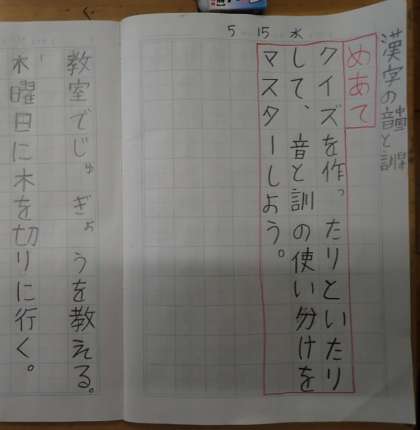 漢字の音と訓
5 15 水
めあて
クイズを作ったりといたり
して、音と訓の使い分けを
マスターしよう。
教室でじゅぎょうを教える。
木曜日に木を切りに行く。